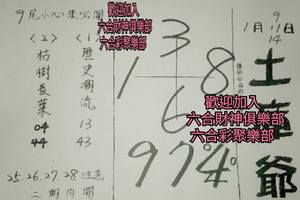 9尾小九小來必開
歡迎加入
六合財神俱樂部
六合彩聚樂部
〈2〉
枯樹長葉
04
44
〈1〉
歷史潮流
13
43
25.26.27.28注意
二期內開
3
1 8
6
9 7 4
歡迎加入
六合財神俱樂部
六合彩聚樂部
9
1月11日
14
土產爺